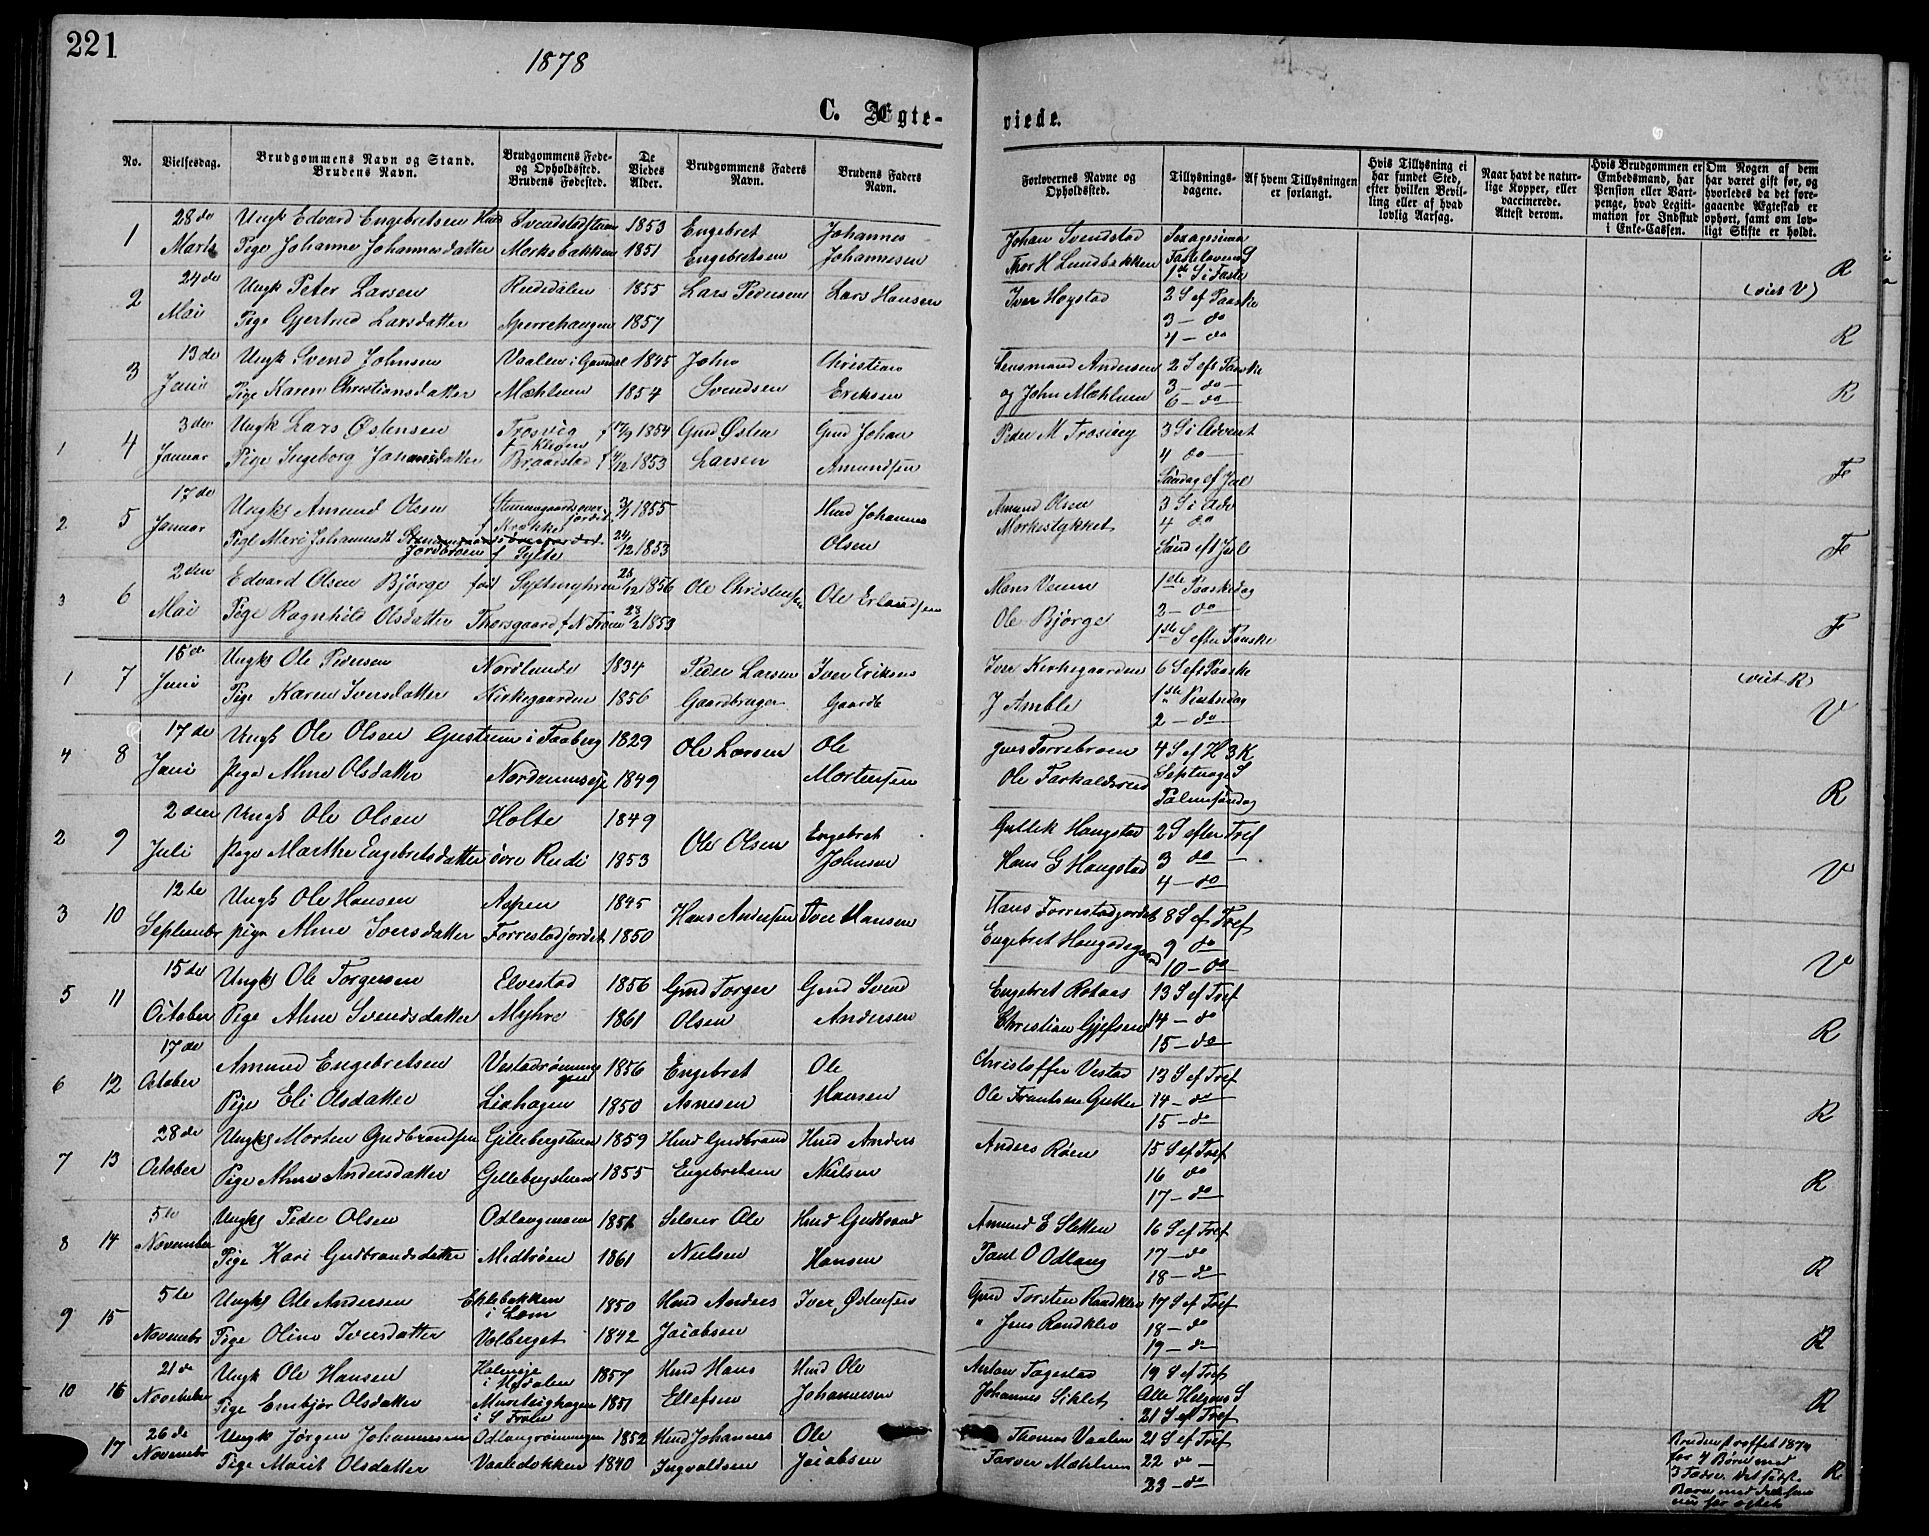 221
1878
C. Ægte- viede.
No.
Vielsesdag.
Brudgommens Navn og Stand.
Brudens Navn.
Brudgommens Føde-
og Opholdssted.
Brudens Fødested.
De
Viedes
Alder.
Brudgommens Faders
Navn.
Brudens Faders
Navn.
Forlovernes Navne og
Opholdssted.
Tillysnings-
dagene.
Af hvem Tillysningen
er forlangt.
Hvis Tillysning ei
har fundet Sted,
efter hvilken Bevil-
ling eller af hvad
lovlig Aarsag.
Naar havt de natur-
lige Kopper, eller
vaccinerede.
Attest derom.
Hvis Brudgommen er
Embedsmand, har
Pension eller Vart-
penge, hvad Legiti-
mation for Indskud
i Enke-Cassen.
Om Nogen af dem
har været gift før, og
hvorledes da det fore-
gaaende Ægteskab er
ophørt, samt om lov-
ligt Skifte er holdt.
1 28de Ungk Edvard Engebretsen 1853 Engebret Johannes Johan Svendstad Sexagesima
Marts Pige Johanne Johannesdatter Morkebakken 1851 Engebretsen Johannesen Thor H Lundbakken Fastelavens S
1ste S i Faste R
2 24de Ungk Peter Larsen Rudsdalen 1855 Lars Pedersen Lars Hansen Iver Hoystad 2 S ef Paaske (viet V)
Mai Pige Gjertrud Larsdatter Sperrehaugen 1857 3 — do
4 — do R
3 13de Ungk Svend Johnsen Vaalen i Gausdal 1845 John Christian Lensmand Andersen 2 S eft Paaske
Juni Pige Karen Christiansdatter Mæhlum 1854 Svendsen Eriksen og John Mæhlum 3 — do —
6 — do R
1 4 3den Ungk Lars Østensen Trosvig f 17/9 1854 Gmd Østen Gmd Johan Peder M Trosvig 3 S i Advent
Januar Pige Ingeborg Johansdatter Braastad f 1853 Larsen Amundsen 4 do —
Søndag ef Jul F
2 5 17de Ungk Amund Olsen 1855 Husd Johannes Amund Olsen 3 S i Adv
Januar Pige Mari Johannesdt 24/12 1853 Olsen Morkestykket 4 do
Jordbroen f Sylte Sønd eft Jul F
3 6 2den Edvard Olsen Bjørge 1856 Ole Christensen Ole Erlandsen Mons Veum 1ste Paaskedag
Mai Pige Ragnhild Olsdatter Thorsgaard f N Fron 28/2 1853 Ole Bjørge 2 — do
1ste S efter Paaske F
1 7 15de Ungk Ole Pedersen Nordlunde 1834 Peder Larsen Iver Eriksen Iver Kirkegaarden 6 S eft Paaske (viet R)
Juni Pige Karen Iversdatter Kirkegaarden 1856 Gaardbruger Gaardb J Amble 1ste Pintsedag
2 — do V
4 8 17de Ungk Ole Olsen Gustum i Faaberg 1829 Ole Larsen Ole Jens Forrebroen 4 S ef H 3 K
Juni Pige Alme Olsdatter Nordrumseje 1849 Mortensen Ole Torkaldsrud Septuag S
Palmesøndag R
2 9 2den Ungk Ole Olsen Holte 1849 Ole Olsen Engebret Guldik Haugstad 2 S efter Tref
Juli Pige Marthe Engebretsdatter øvre Rudi 1853 Johnsen Hans G Haugstad 3 do —
4 — do V
3 10 12te Ungk Ole Hansen Aspen 1845 Hans Andersen Iver Hansen Hans Forrestadjordet 8 S ef Tref
September Pige Alme Iversdatter Forrestadjordet 1850 Engebret Haugsdegaard 9 do
10 — do V
5 11 15de Ungk Ole Torgersen Elvestad 1856 Gmd Torger Gmd Svend Engebret Rotaas 13 S ef Tref
October Pige Alme Svendsdatter Myhre 1861 Olsen Andersen Christian Gjefsen 14 — do
15 — do R
6 12 17de Amund Engebretsen 1856 Engebret Ole Christoffer Vestad 13 S ef Tref
October Pige Eli Olsdatter Liehagen 1850 Asnesen Hansen Ole Frantsen 14 — do
15 — do R
7 13 28de Ungk Morten Gudbrandsen Gillebergstuen 1859 Husd Gudbrand Husd Anders Anders Røen 15 S ef Tref
October Pige Alme Andersdatter Gillebergstuen 1855 Engebretsen Nielsen 16 do
17 — do R
8 14 5te Ungk Peder Olsen Odlaugmoen 1851 Selveier Ole Husd Gudbrand Amund E Sletten 16 S ef Tref
November Pige Kari Gudbrandsdatter Midtrøen 1861 Nielsen Hansen Paul O Odlaug 17 — do
18 — do R
9 15 5te Ungk Ole Andersen Eklebakken 1850 Husd Anders Iver Østensen Gmd Torsten Randklev 17 S ef Tref
i Lom
November Pige Oline Iversdatter Volberget 1842 Jacobsen " Jens Randklev 18 — do
19 — do R
10 16 21de Ungk Ole Hansen 1857 Husd Hans Husd Ole Anton Tagestad 19 S ef Tref
November Pige Embjør Olsdatter 1851 Ellefsen Johannesen Johannes Siklet Alle Helgens S
i S Fron 21 S ef Tref R
17 26de Ungk Jørgen Johannesen Odlaugrønningen 1852 Husd Johannes Ole Thomas Vaalen 21 S ef Tref
November Pige Marit Olsdatter Vaalebakken 1840 Ingvaldsen Jacobsen Tarver Mæhlum 22 do —
23 — do R
Bruden straffet 1874
for 4 Børn med
3 Fædre. Det sidste
Barn med